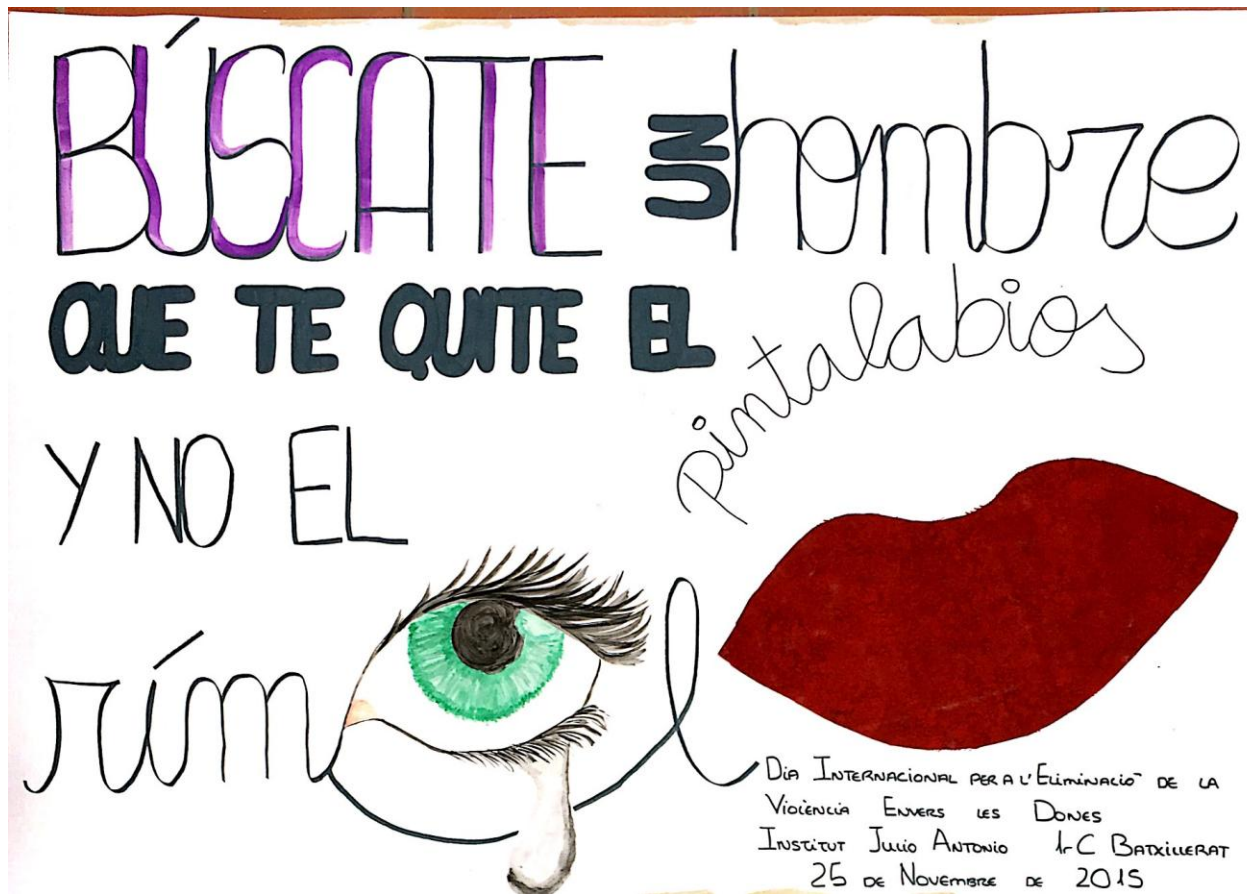 BÚSCATE UN hombre
QUE TE QUITE EL pintalabios
Y NO EL
rímel
DIA INTERNACIONAL PER A L'ELIMINACIÓ DE LA
VIOLÈNCIA ENVERS LES DONES
INSTITUT JULIO ANTONIO 1r C BATXILLERAT
25 DE NOVEMBRE DE 2015